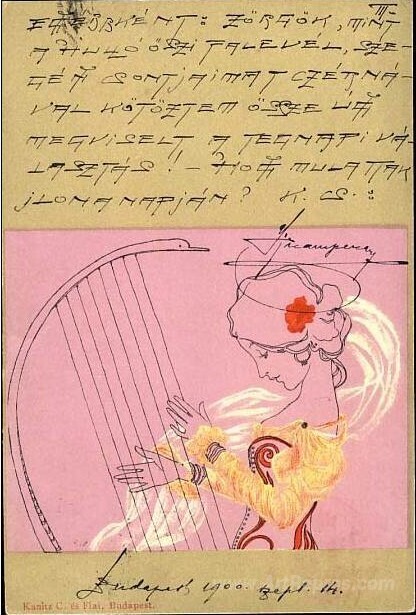 III.
EGYÉBBKÉNT: ZÖRGÖK, MINT
A HULLÓ ŐSZI FALEVÉL, SZE-
GÉNY CSONTJAIMAT CZÉRNÁ-
VAL KÖTÖZTEM ÖSSZE ÚGY
MEGVISELT A TEGNAPI VÁ-
LASZTÁS! – HOGY MULATTAK
ILONA NAPJÁN? K. CS.:
Budapest 1900. szept. 14.
Kanitz C. és Fiai, Budapest.